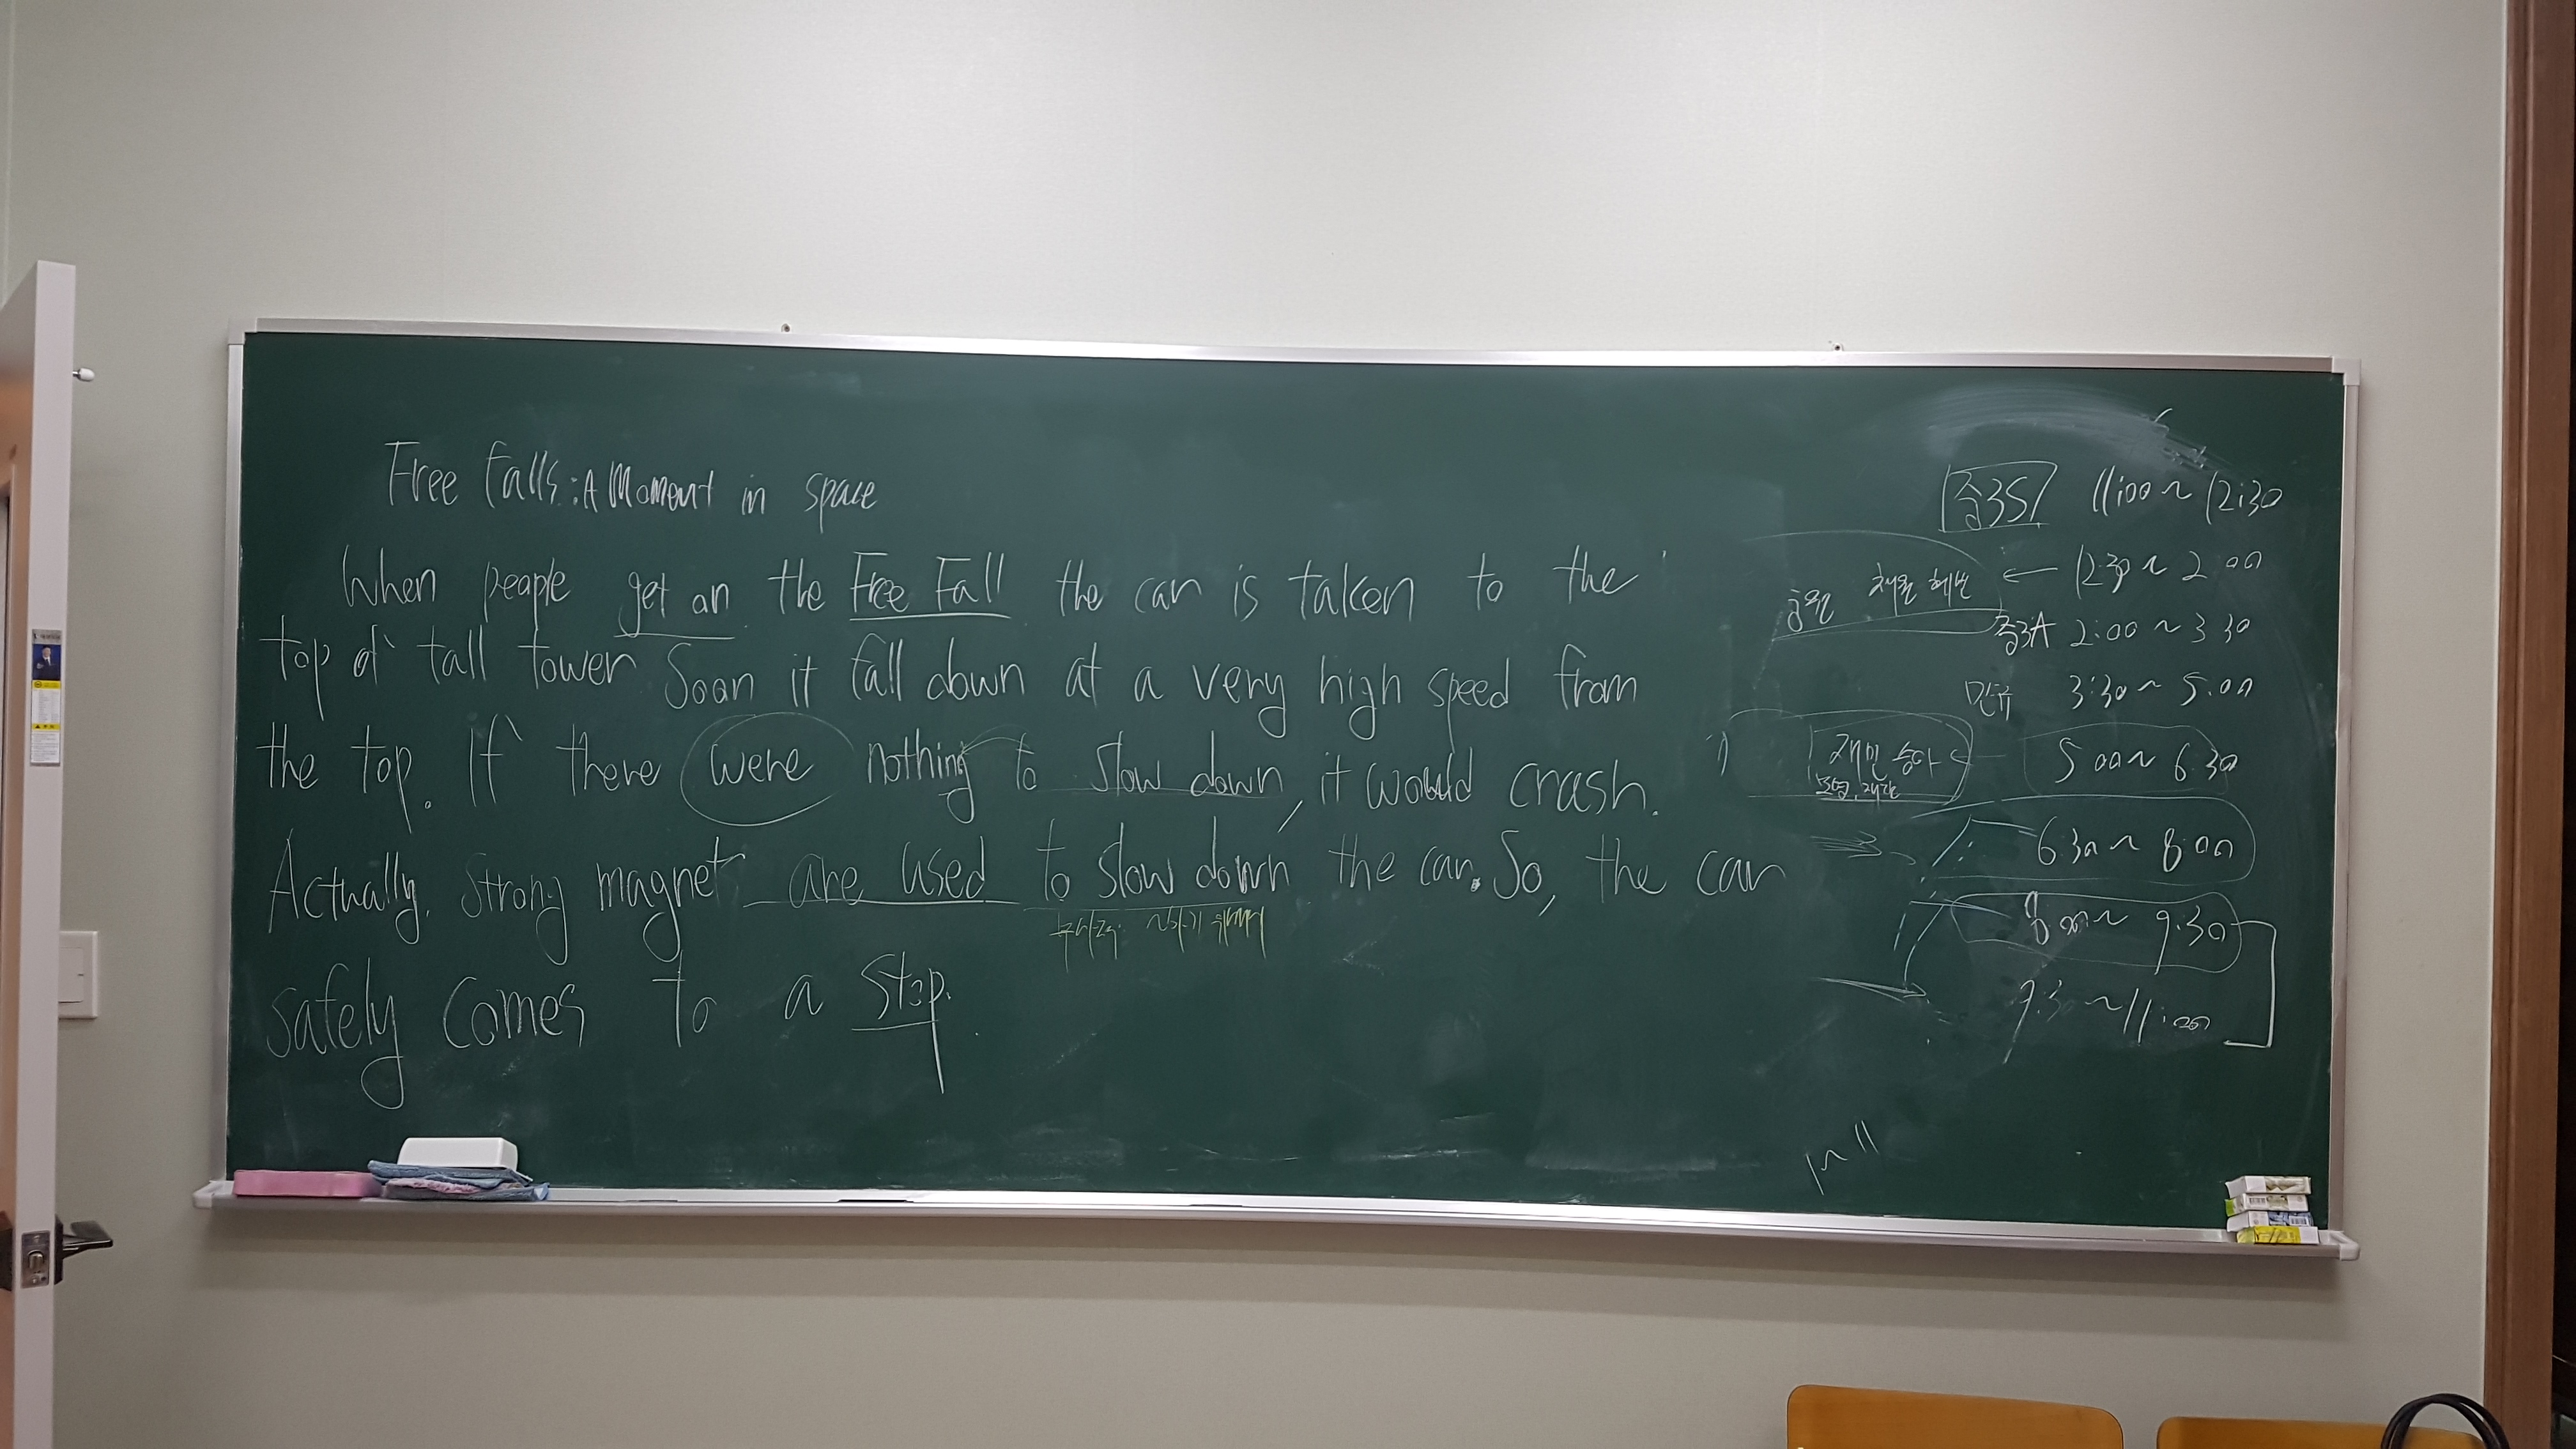 Free Falls : A Moment in space
When people get on the Free Fall the car is taken to the
top of tall tower Soon it fall down at a very high speed from
the top. If there were nothing to slow down, it would crash.
Actually, strong magnet are used to slow down the car. So, the car
safely comes to a stop.
11:00 ~ 12:30
12:30 ~ 2:00
중3A 2:00 ~ 3:30
민규 3:30 ~ 5:00
5:00 ~ 6:30
6:30 ~ 8:00
8:00 ~ 9:30
9:3 ~ 11:00